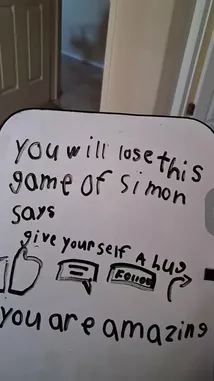 you will lose this
game of simon
says
give yourself A hug
Follow
you are amazing